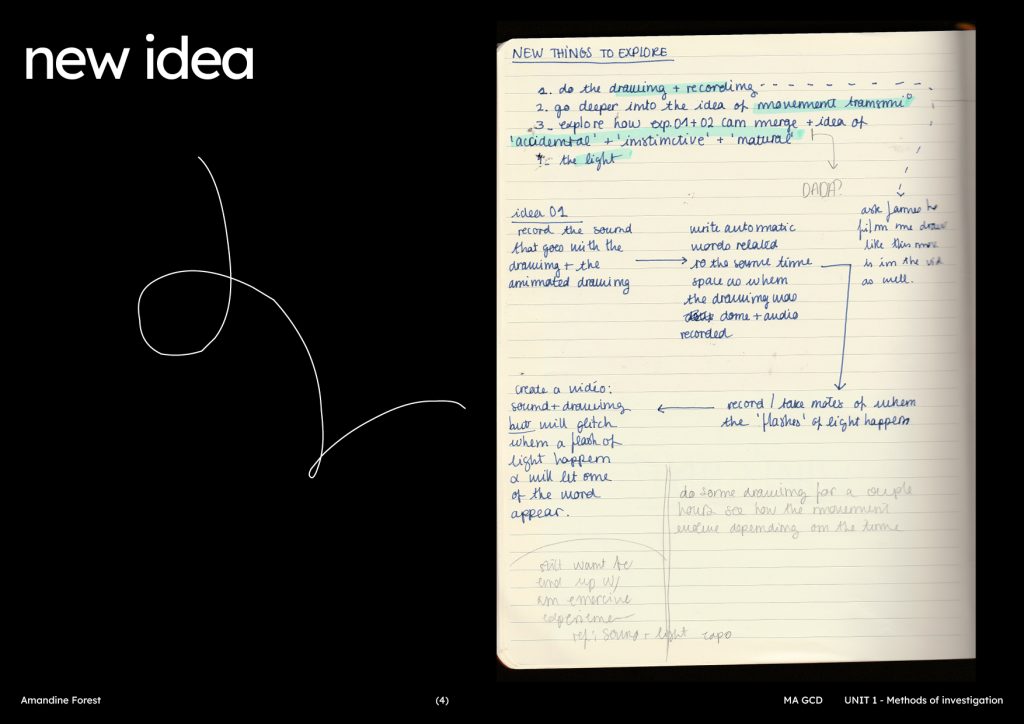 new idea
NEW THINGS TO EXPLORE
1. do the drawing + recording
2. go deeper into the idea of movement transmi°
3. explore how exp.01+02 can merge + idea of
'accidental' + 'instinctive' + 'natural'
4. the light
DADA?
ask James to
film me draw
like this move
is in the vid
as well.
idea 01
record the sound
that goes with the
drawing + the
animated drawing
write automatic
words related
to the same time
space as when
the drawing was
done + audio
recorded
record / take notes of when
the 'flashes' of light happen
create a video:
sound + drawing
but will glitch
when a flash of
light happen
& will let one
of the word
appear.
do some drawing for a couple
hours see how the movement
evolve depending on the time
still want to
end up w/
an emersive
experience
ref: sound + light expo
Amandine Forest
(4)
MA GCD
UNIT 1 - Methods of investigation